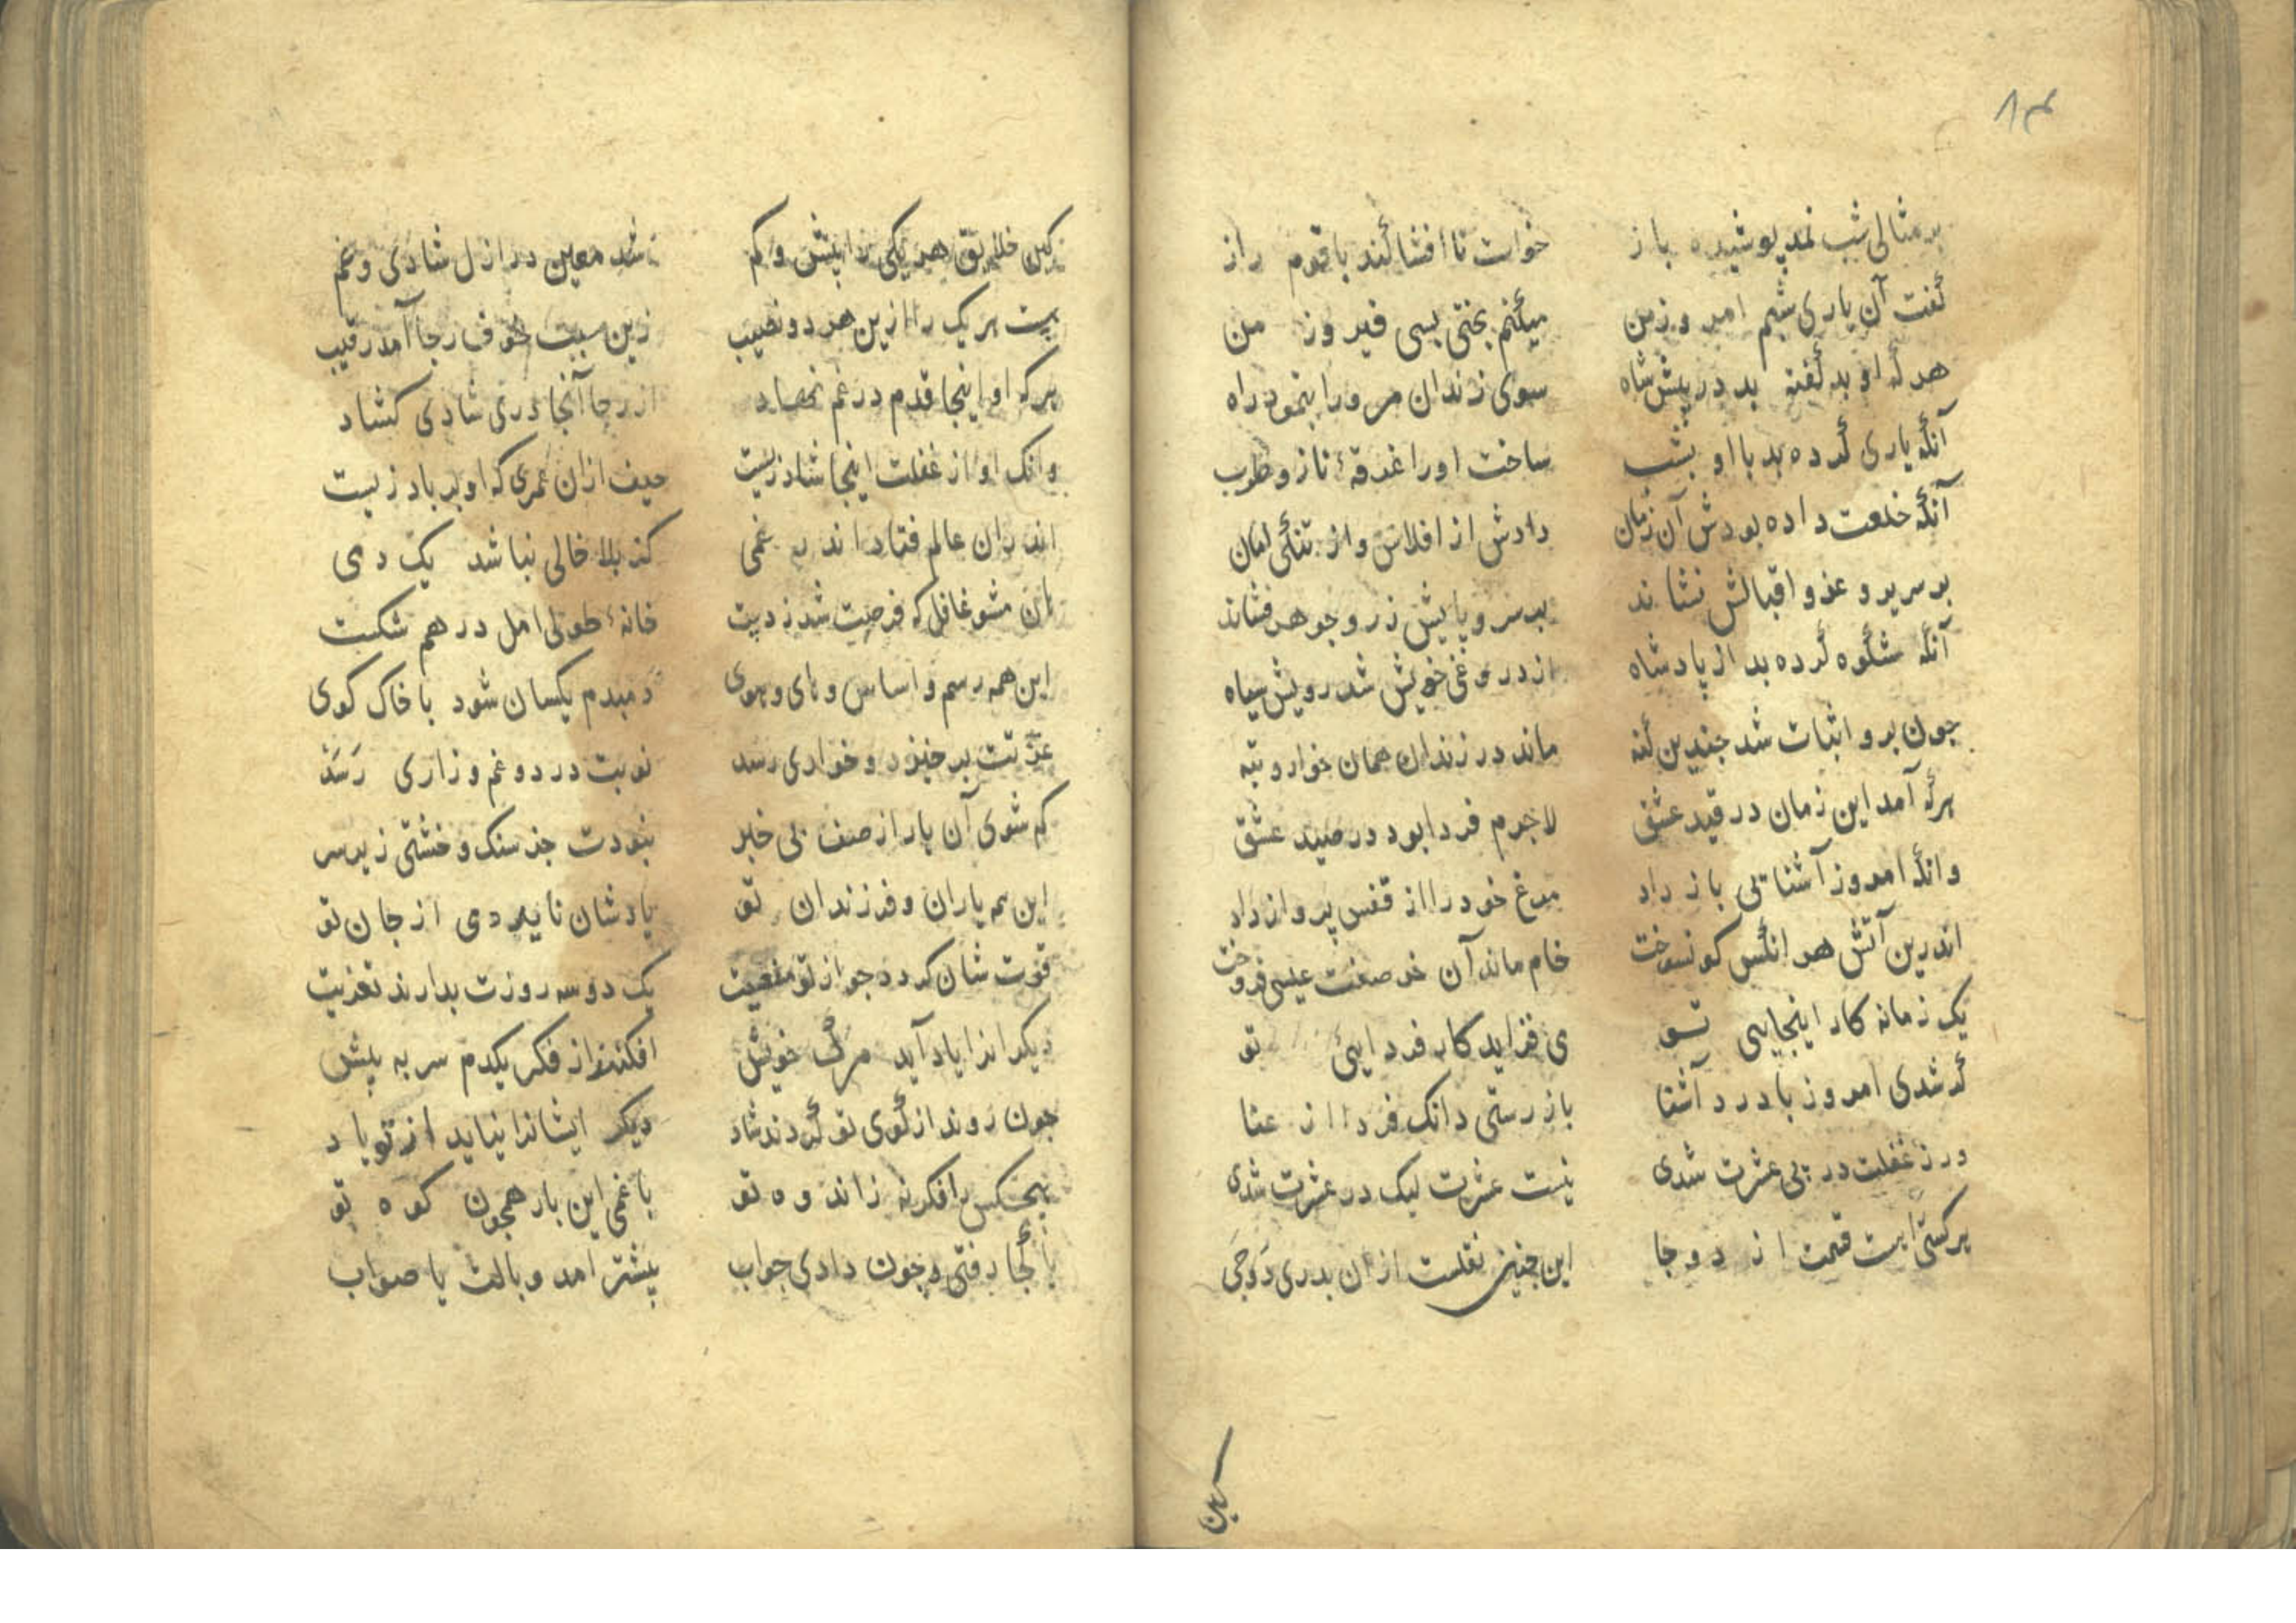 ۸۴
بر مثالی شب نمد پوشیده باز خواست تا افشا کند با قوم راز
گفت آن یاری شبم امروز من میکنم بختی بسی فیروز من
هر که او بد گفته بد در پیش شاه سوی زندان مرورا بنمود راه
آنکه یاری کرده بد با او بشب ساخت اورا غرقهٔ ناز و طرب
آنکه خلعت داده بودش آن زمان دادش از افلاس و از تنگی امان
بر سریر و عز و اقبالش نشاند بر سر و پایش زر و جوهر فشاند
آنکه شکوه کرده بد از پادشاه از دروغی خویش شد رویش سیاه
جون برو اثبات شد جندین کنه ماند در زندان همان خوار و تبه
هرکه آمد این زمان در قید عشق لاجرم فردا بود در صید عشق
وانکه امروز آشنائی باز داد مرغ خود را از قفس پرواز داد
اندرین آتش هر انکس کو نسوخت خام ماند آن خر صفت عیسی فروخت
یک زمانه کار اینجایی تو می فزاید کار فردایئ تو
گر شدی امروز با درد آشنا باز رستی دانک فردا از عنا
ور ز غفلت در پی عشرت شدی نیست عشرت لیک در عشرت شدی
هر کسی است قسمت از دو جا این جنین نقلست از ان بدری دوجی
کین
کین خلایق هر یکی را بیش و کم شد معین در ازل شادی و غم
هست هر یک را ازین هر دو نصیب زین سبب خوف رجا آمد رقیب
هرکه او اینجا قدم در غم نهاد از رجا آنجا دری شادی کشاد
وانک او از غفلت اینجا شاد زیست حیف ازان عمری که او بر باد زیست
اندران عالم فتاد اندر غمی کز بلا خالی نباشد یک دمی
هان مشو غافل که فرصت شد ز دست خانهٔ طولی امل در هم شکست
این همه رسم و اساس و های و هوی دمبدم یکسان شود با خاک کوی
عزتت بر خیزد و خواری رسد نوبت درد و غم و زاری رسد
کم شوی آن بار از صنف بی خبر نبودت جز سنک و خشتی زیر سر
این همه یاران و فرزندان تو یادشان ناید دمی از جان تو
قوت شان کردد جو از تو منفعیت یک دو سه روزت بدارند تعزیت
دیکرانرا یاد آید مرگ خویش افکنند از فکر یکدم سر به پیش
جون روند از کوی تو کردند شاد دیکر ایشانرا نیاید از تو یاد
هیجکس را فکر نه ز اندوه تو با غمی این بار همجون کوه تو
تا کجا رفتی و جون دادی جواب بیشتر امد وبالت یا صواب